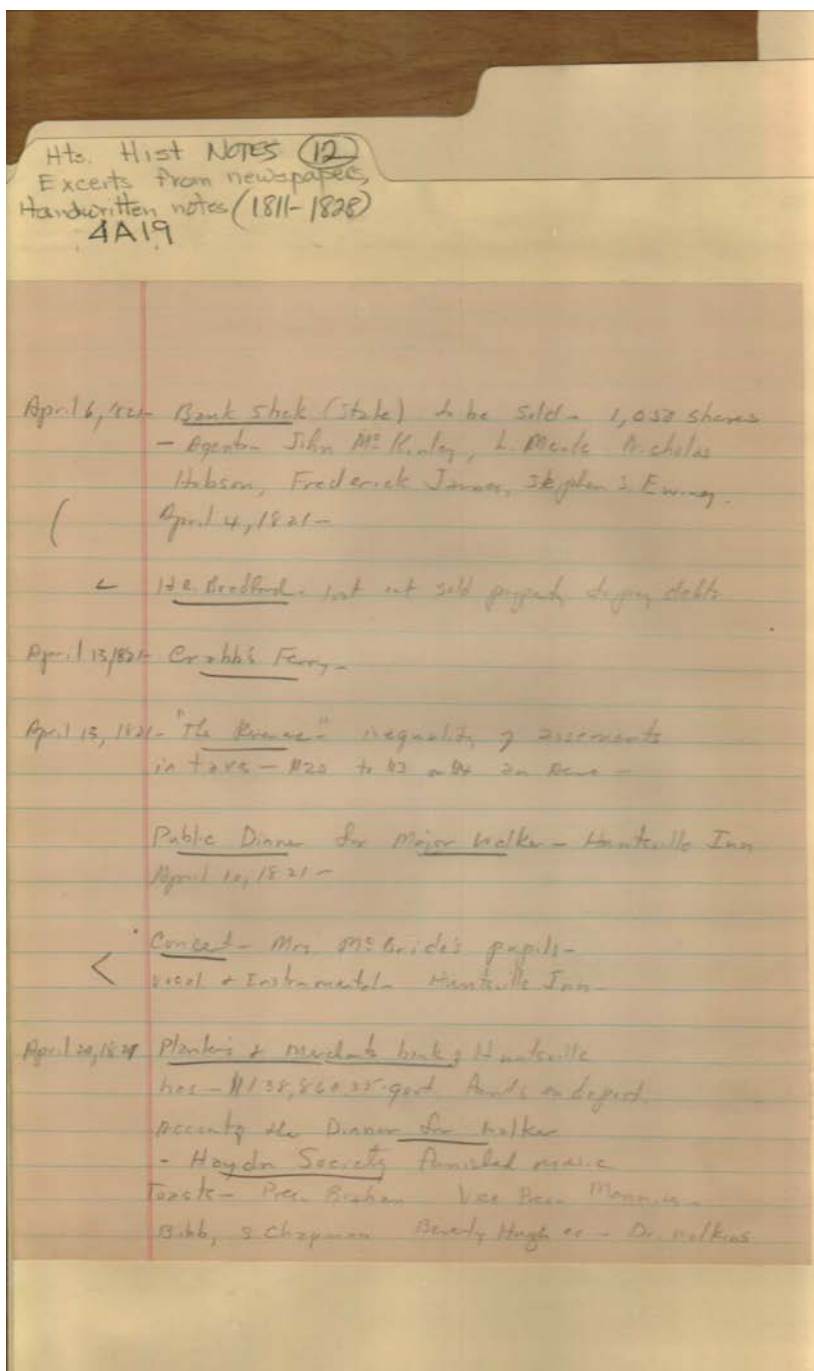 Hts. Hist NOTES (12)
Excerts from newspapers,
Handwritten notes (1811-1828)
4A19
April 6, '21- Bank Stock (State) to be sold - 1,058 shares
- Agents - John McKinley, L. Meade Nicholas
Hobson, Frederick James, Stephen S Ewing.
April 4, 1821-
H.R. Bradford. sold property to pay debts
April 13, 1821- Crabb's Ferry -
April 13, 1821- "The Revenue" - inequality of assessments
in taxes - $20 to $3 or $4 an Acre -
Public Dinner for Major Walker - Huntsville Inn
April 10, 1821 -
Concert - Mrs McBride's pupils -
vocal & Instrumental - Huntsville Inn -
April 20, 1821 Planter's & Merchants bank of Huntsville
has - govt. funds on deposit.
Account of the Dinner for Walker
- Haydn Society furnished music
Toasts - Pres. Vice Pres.
Bibb, S Chapman Beverly Hughes - Dr.